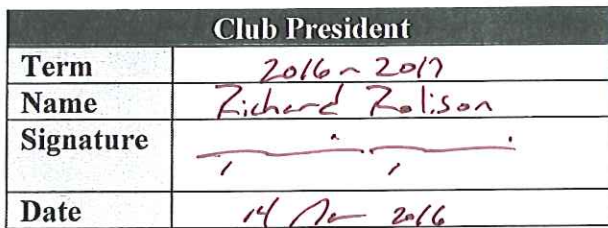 Club President
Term 2016 - 2017
Name Richard Rolison
Signature
Date 14 2016